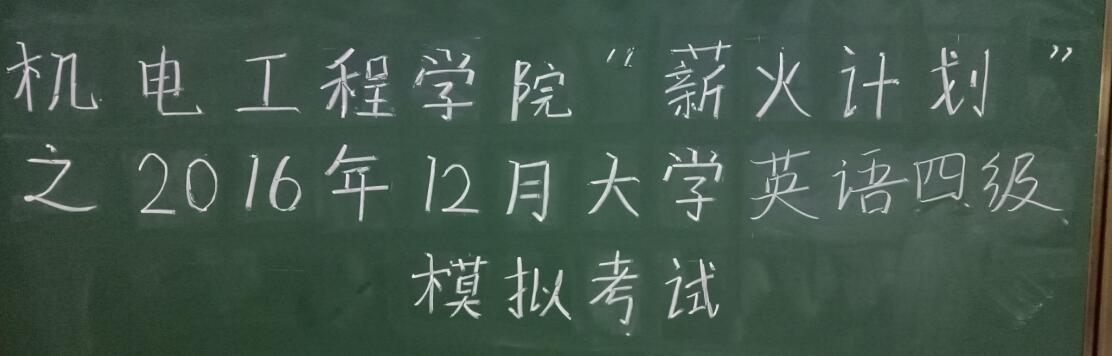 机电工程学院“薪火计划”
之2016年12月大学英语四级
模拟考试